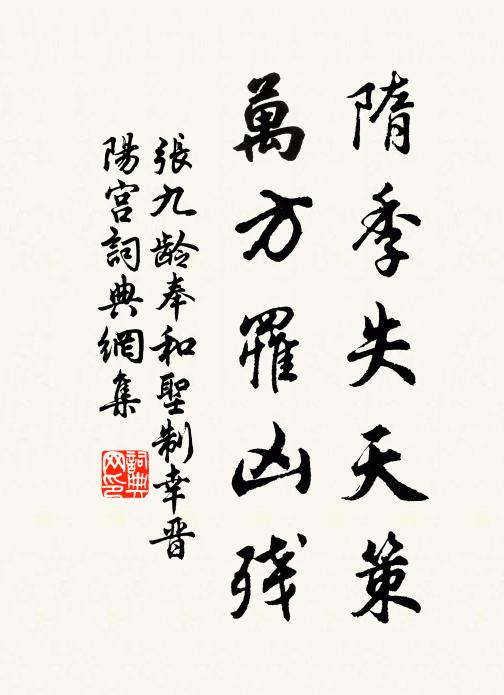 隋季失天策
萬方罹凶残
張九龄奉和聖制幸晋
陽宮詞典網集
詞典
网印